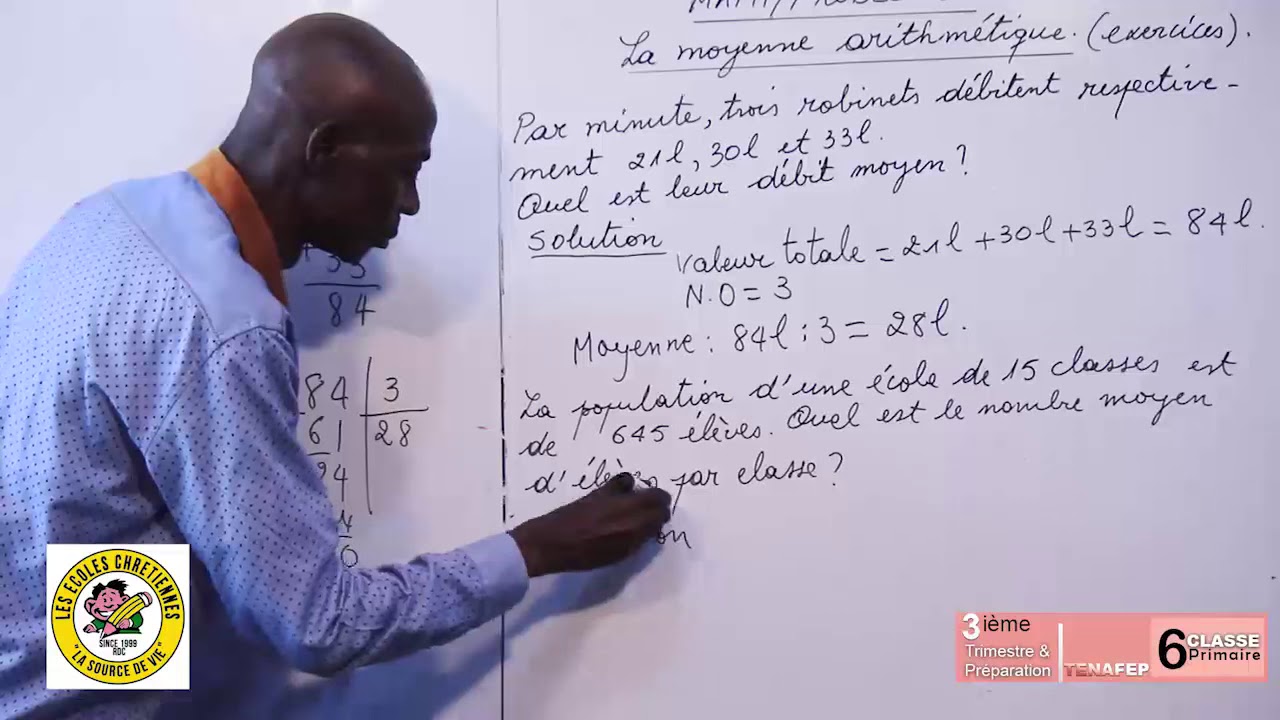 La moyenne arithmétique. (exercices).
Par minute, trois robinets débitent respective-
ment 21l, 30l et 33l.
Quel est leur débit moyen ?
Solution
Valeur totale = 21l + 30l + 33l = 84l.
N.O = 3
Moyenne : 84l : 3 = 28l.
La population d'une école de 15 classes est
de 645 élèves. Quel est le nombre moyen
d'élèves par classe ?
on
+ 33
84
84 3
61 28
24
0
LES ECOLES CHRETIENNES
SINCE 1999
RDC
"LA SOURCE DE VIE"
3ième
Trimestre &
Préparation
TENAFEP
6 CLASSE
Primaire